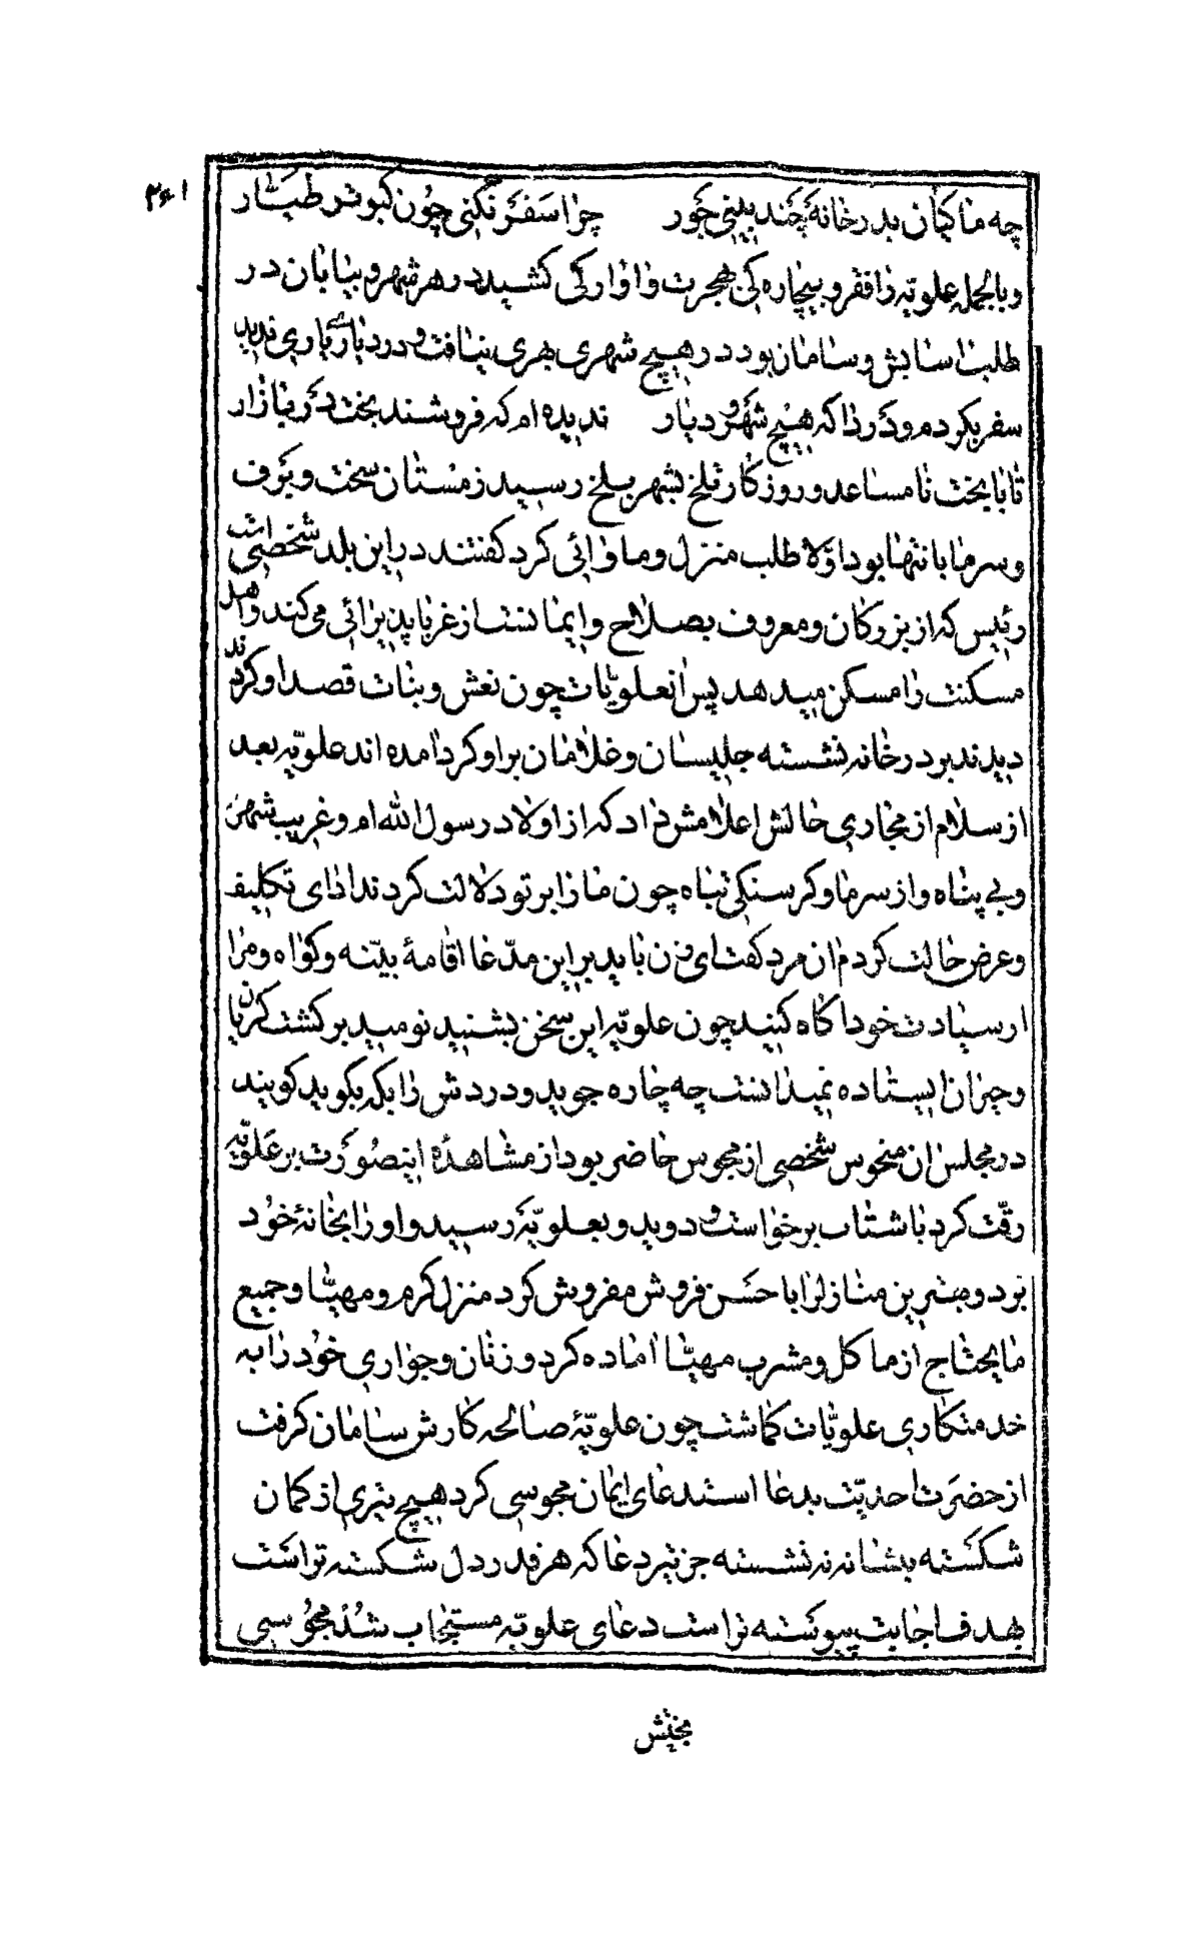 ۲۶۱
چه ماکیان بدر خانهٔ چند بینی جور چرا سفر نکنی چون کبوتر طیّار
و بالجمله علویّه را فقر و بیچاره کی هجرت و اواره کی کشید در هر شهر و بیابان در
طلب اسایش و سامان بود در هیچ شهری بهری نیافت و در دیاری یاری ندید
سفر بکردم و درداکه هیچ شهر و دیار ندیده ام که فروشند بخت در بازار
تا با بخت نامساعد و روزکار تلخ بشهر بلخ رسید زمستان سخت و برف
و سرما بانتها بود اوّلا طلب منزل و ماوائی کرد کفتند در این بلد شخصی است
رئیس که از بزرکان و معروف بصلاح و ایمانست از غربا پذیرائی می کند و اهل
مسکنت را مسکن میدهد پس ان علویّات چون نعش و بنات قصد او کردند
دیدند بر در خانه نشسته جلیسان و غلامان بر او کرد امده اند علویّه بعد
از سلام از مجاری حالش اعلامش داد که از اولاد رسول الله ام و غریب شهرم
و بی پناه و از سرما و کرسنکی تباه چون ما را بر تو دلالت کردند ادای تکلیف
و عرض حالت کردم ان مرد کفت ای زن باید بر این مدّعا اقامهٔ بیّنه و کواه و مرا
از سیادت خود اکاه کنید چون علویّه این سخن بشنید نومید برکشت کریان
و حیران ایستاده نمیدانست چه چاره جوید و دردش را بکه بکوید کویند
در مجلس ان منحوس شخصی از مجوس حاضر بود از مشاهدهٔ اینصورت بر علویّه
رقّت کرد با شتاب برخواست و دوید و بعلویّه رسید و او را بخانهٔ خود
برد و بهترین منازل را با حسن فروش مفروش کرد منزل کرم و مهیّا و جمیع
ما یحتاج از ماکل و مشرب مهیّا اماده کرد و زنان و جواری خود را به
خدمتکاری علویّات کماشت چون علویّهٔ صالحه کارش سامان کرفت
از حضرت احدیّت بدعا استدعای ایمان مجوسی کرد هیچ تیری از کمان
شکسته بنشانه ننشسته جز تیر دعا که هر قدر دل شکسته تر است
بهدف اجابت پیوسته تر است دعای علویّه مستجاب شد مجوسی